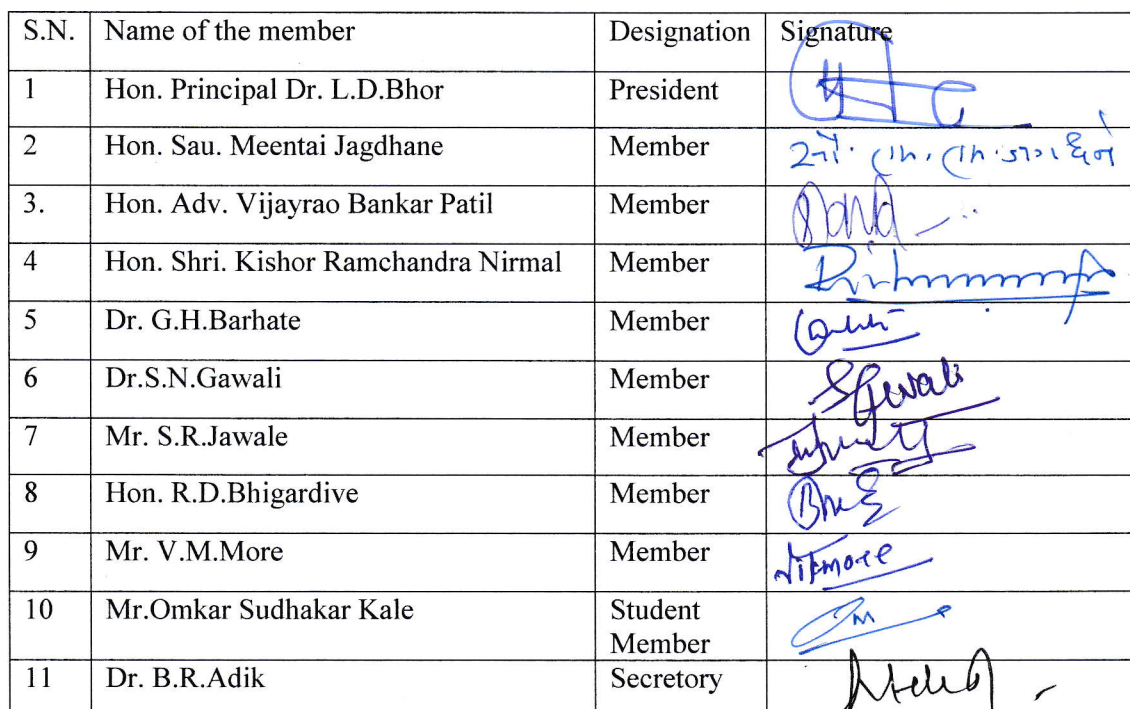 S.N. Name of the member Designation Signature
1 Hon. Principal Dr. L.D.Bhor President
2 Hon. Sau. Meentai Jagdhane Member
3. Hon. Adv. Vijayrao Bankar Patil Member
4 Hon. Shri. Kishor Ramchandra Nirmal Member
5 Dr. G.H.Barhate Member
6 Dr.S.N.Gawali Member SGawali
7 Mr. S.R.Jawale Member
8 Hon. R.D.Bhigardive Member
9 Mr. V.M.More Member
10 Mr.Omkar Sudhakar Kale Student
Member
11 Dr. B.R.Adik Secretory